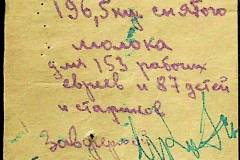 196,5 кг. снятого
молока
для 153 рабочих
евреев и 87 детей
и стариков